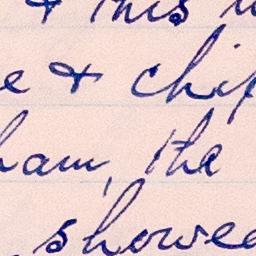 & this
& chip
ham, the
showed